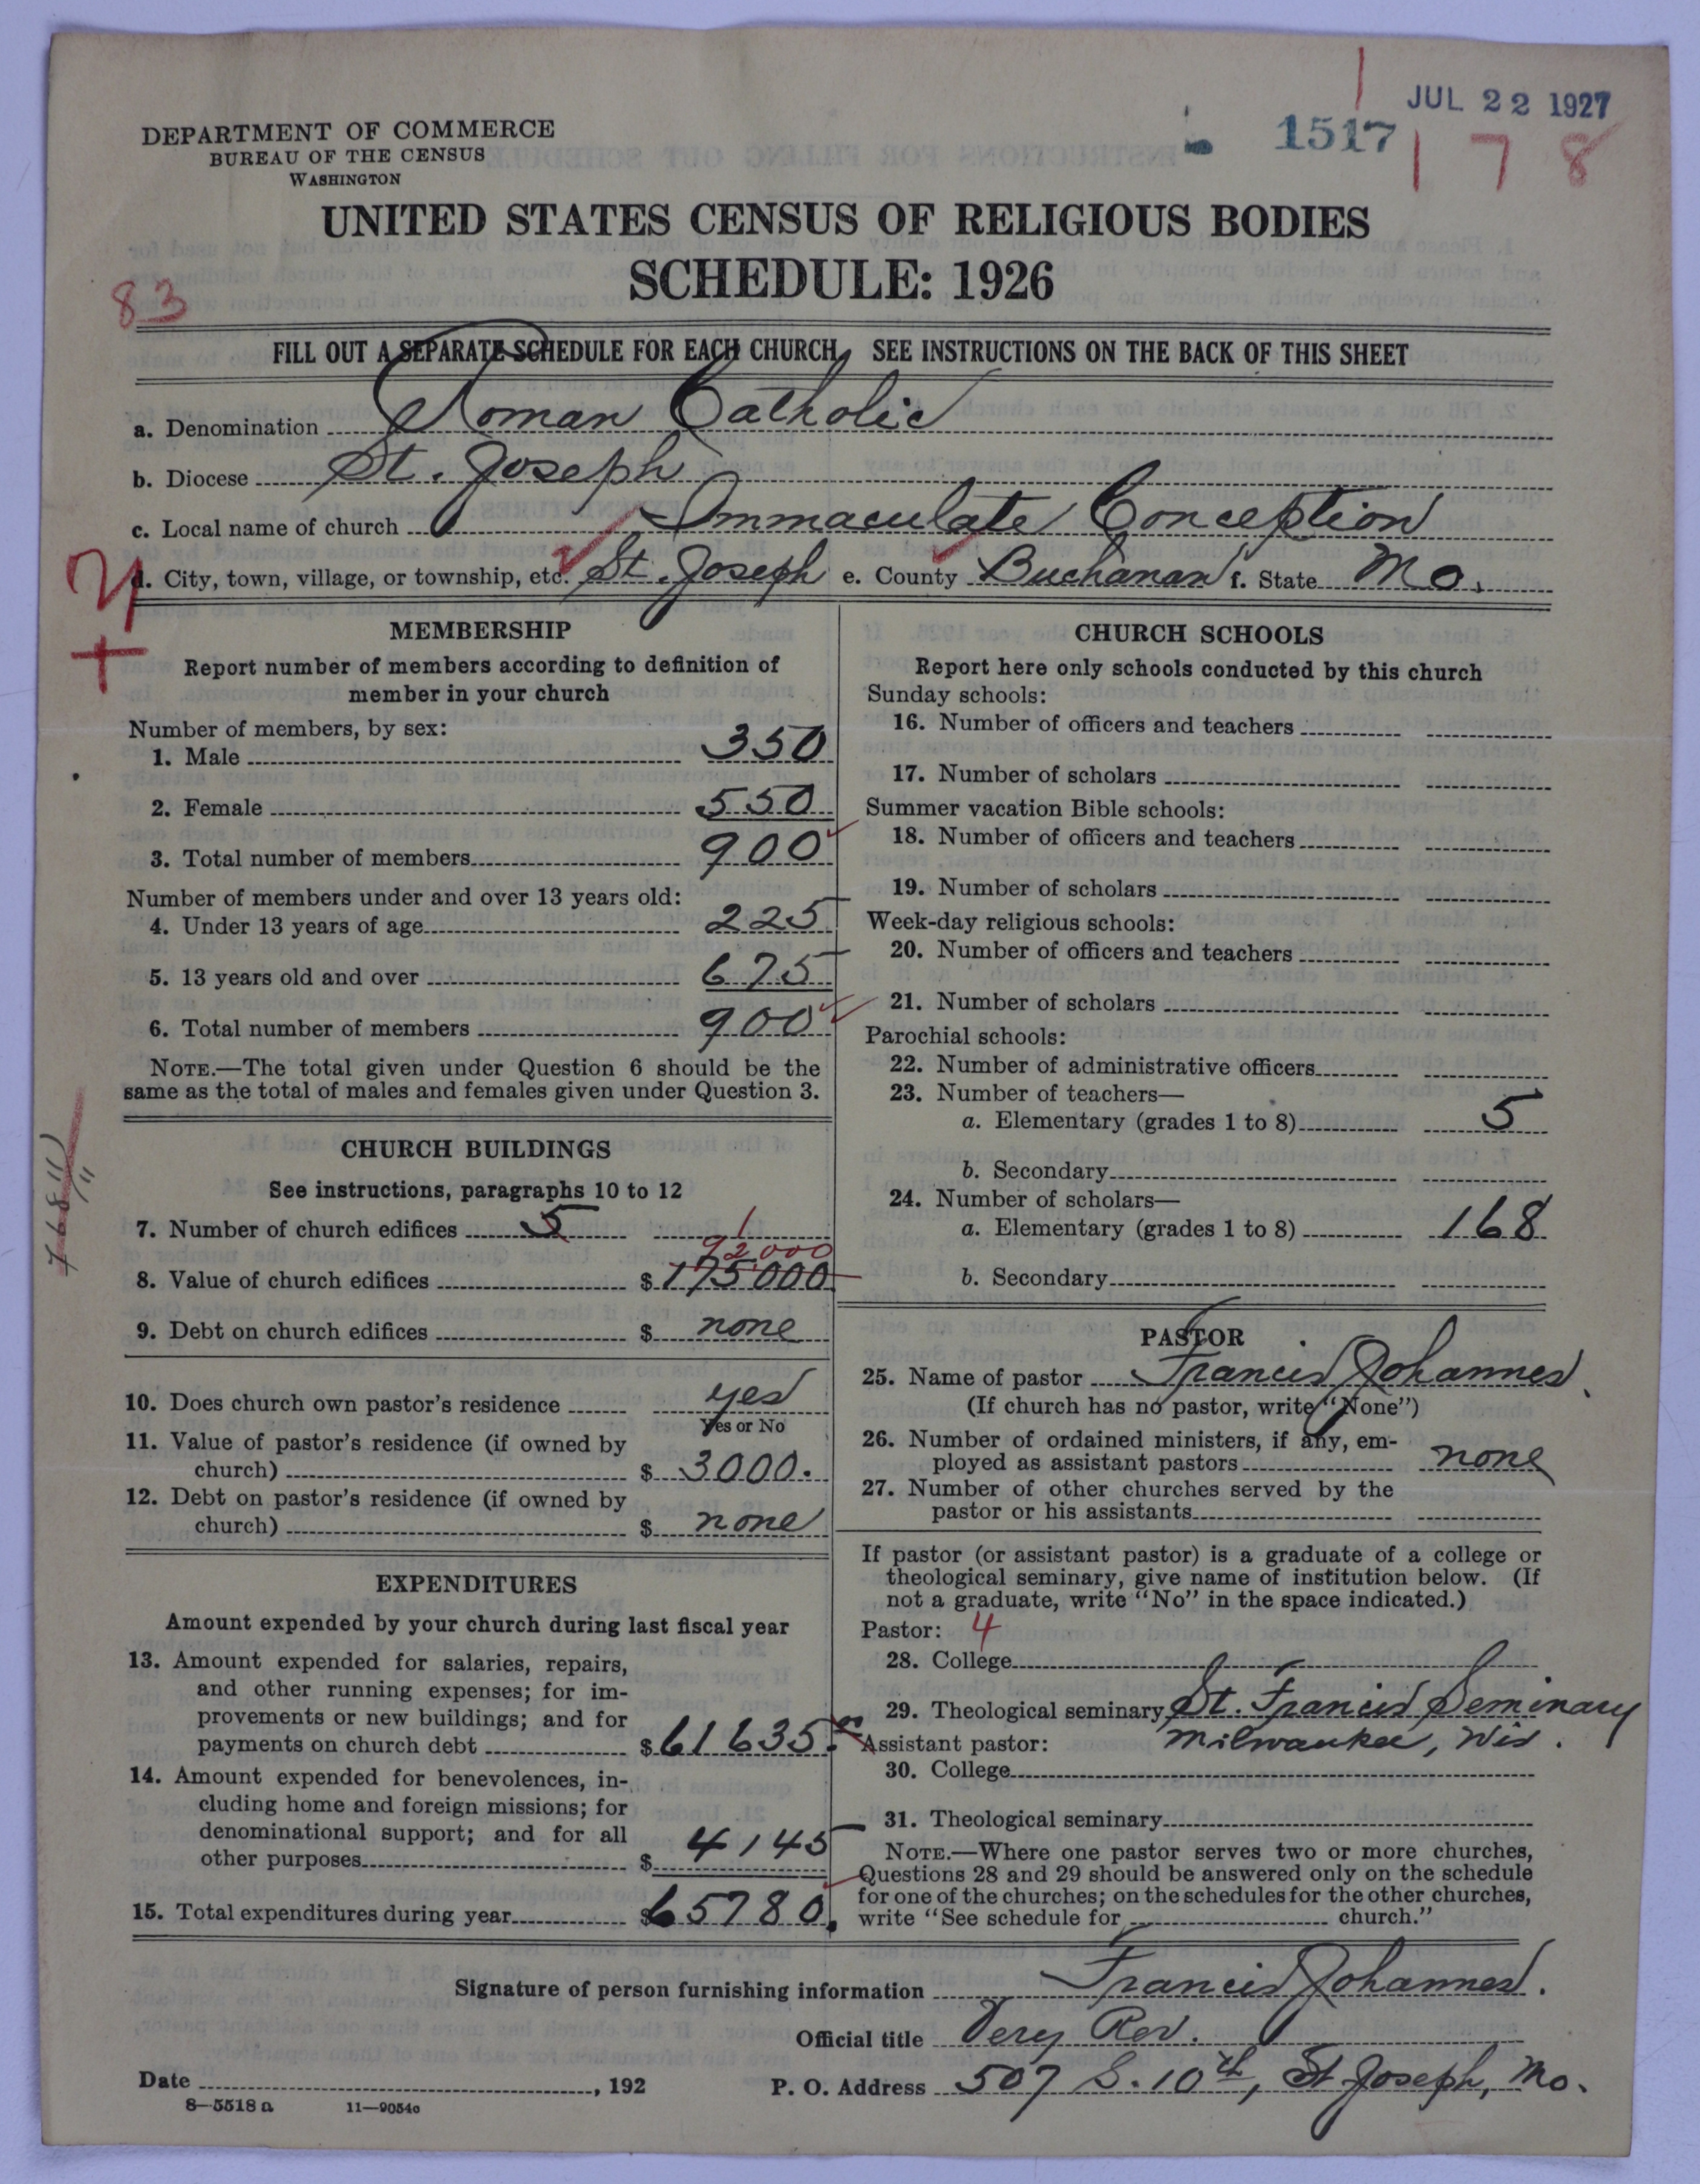 JUL 22 1927
1517
1 7 8
DEPARTMENT OF COMMERCE
BUREAU OF THE CENSUS
WASHINGTON
UNITED STATES CENSUS OF RELIGIOUS BODIES
SCHEDULE: 1926
83
FILL OUT A SEPARATE SCHEDULE FOR EACH CHURCH. SEE INSTRUCTIONS ON THE BACK OF THIS SHEET
a. Denomination Roman Catholic
b. Diocese St. Joseph
c. Local name of church Immaculate Conception
d. City, town, village, or township, etc. St. Joseph e. County Buchanan f. State Mo.
MEMBERSHIP
Report number of members according to definition of
member in your church
Number of members, by sex:
1. Male 350
2. Female 550
3. Total number of members 900
Number of members under and over 13 years old:
4. Under 13 years of age 225
5. 13 years old and over 675
6. Total number of members 900
NOTE.—The total given under Question 6 should be the
same as the total of males and females given under Question 3.
CHURCH BUILDINGS
See instructions, paragraphs 10 to 12
7. Number of church edifices 5 1
92000
8. Value of church edifices $ 175000
9. Debt on church edifices $ none
10. Does church own pastor's residence yes
Yes or No
11. Value of pastor's residence (if owned by
church) $ 3000.
12. Debt on pastor's residence (if owned by
church) $ none
EXPENDITURES
Amount expended by your church during last fiscal year
13. Amount expended for salaries, repairs,
and other running expenses; for im-
provements or new buildings; and for
payments on church debt $ 61635.00
14. Amount expended for benevolences, in-
cluding home and foreign missions; for
denominational support; and for all
other purposes $ 4145
15. Total expenditures during year $ 65780.
CHURCH SCHOOLS
Report here only schools conducted by this church
Sunday schools:
16. Number of officers and teachers
17. Number of scholars
Summer vacation Bible schools:
18. Number of officers and teachers
19. Number of scholars
Week-day religious schools:
20. Number of officers and teachers
21. Number of scholars
Parochial schools:
22. Number of administrative officers
23. Number of teachers—
a. Elementary (grades 1 to 8) 5
b. Secondary
24. Number of scholars—
a. Elementary (grades 1 to 8) 168
b. Secondary
PASTOR
25. Name of pastor Francis Johannes.
(If church has no pastor, write "None")
26. Number of ordained ministers, if any, em-
ployed as assistant pastors none
27. Number of other churches served by the
pastor or his assistants
If pastor (or assistant pastor) is a graduate of a college or
theological seminary, give name of institution below. (If
not a graduate, write "No" in the space indicated.)
Pastor: 4
28. College
29. Theological seminary St. Francis Seminary
Assistant pastor: Milwaukee, Wis.
30. College
31. Theological seminary
NOTE.—Where one pastor serves two or more churches,
Questions 28 and 29 should be answered only on the schedule
for one of the churches; on the schedules for the other churches,
write "See schedule for church."
Signature of person furnishing information Francis Johannes.
Official title Very Rev.
Date , 192
P. O. Address 507 S. 10th, St Joseph, Mo.
8—5518 a 11—9054c